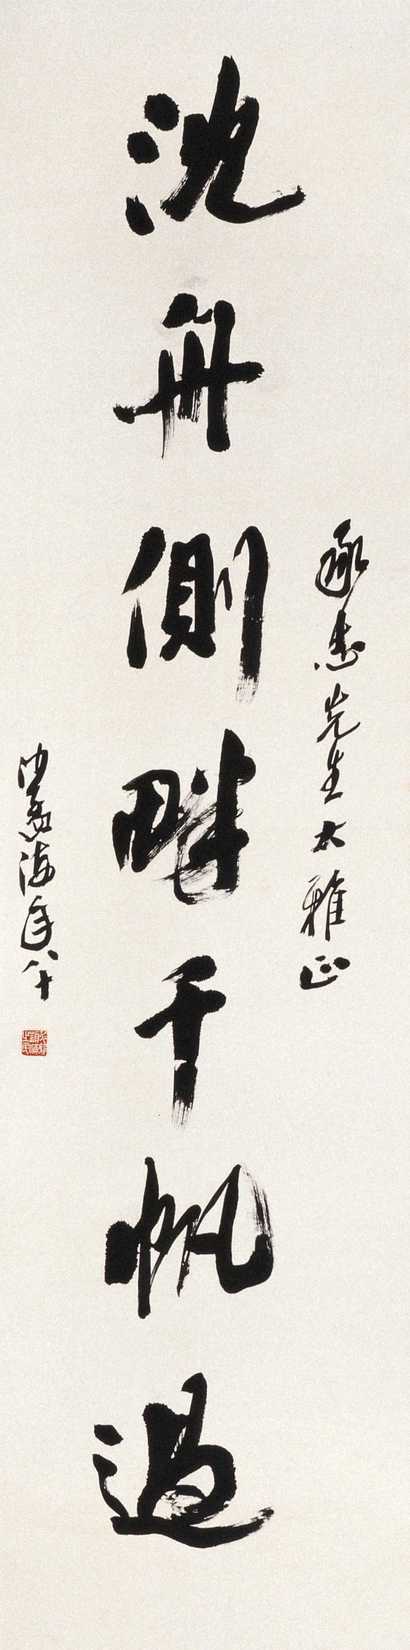 承志先生大雅正
沈舟側畔千帆過
沙孟海年八十